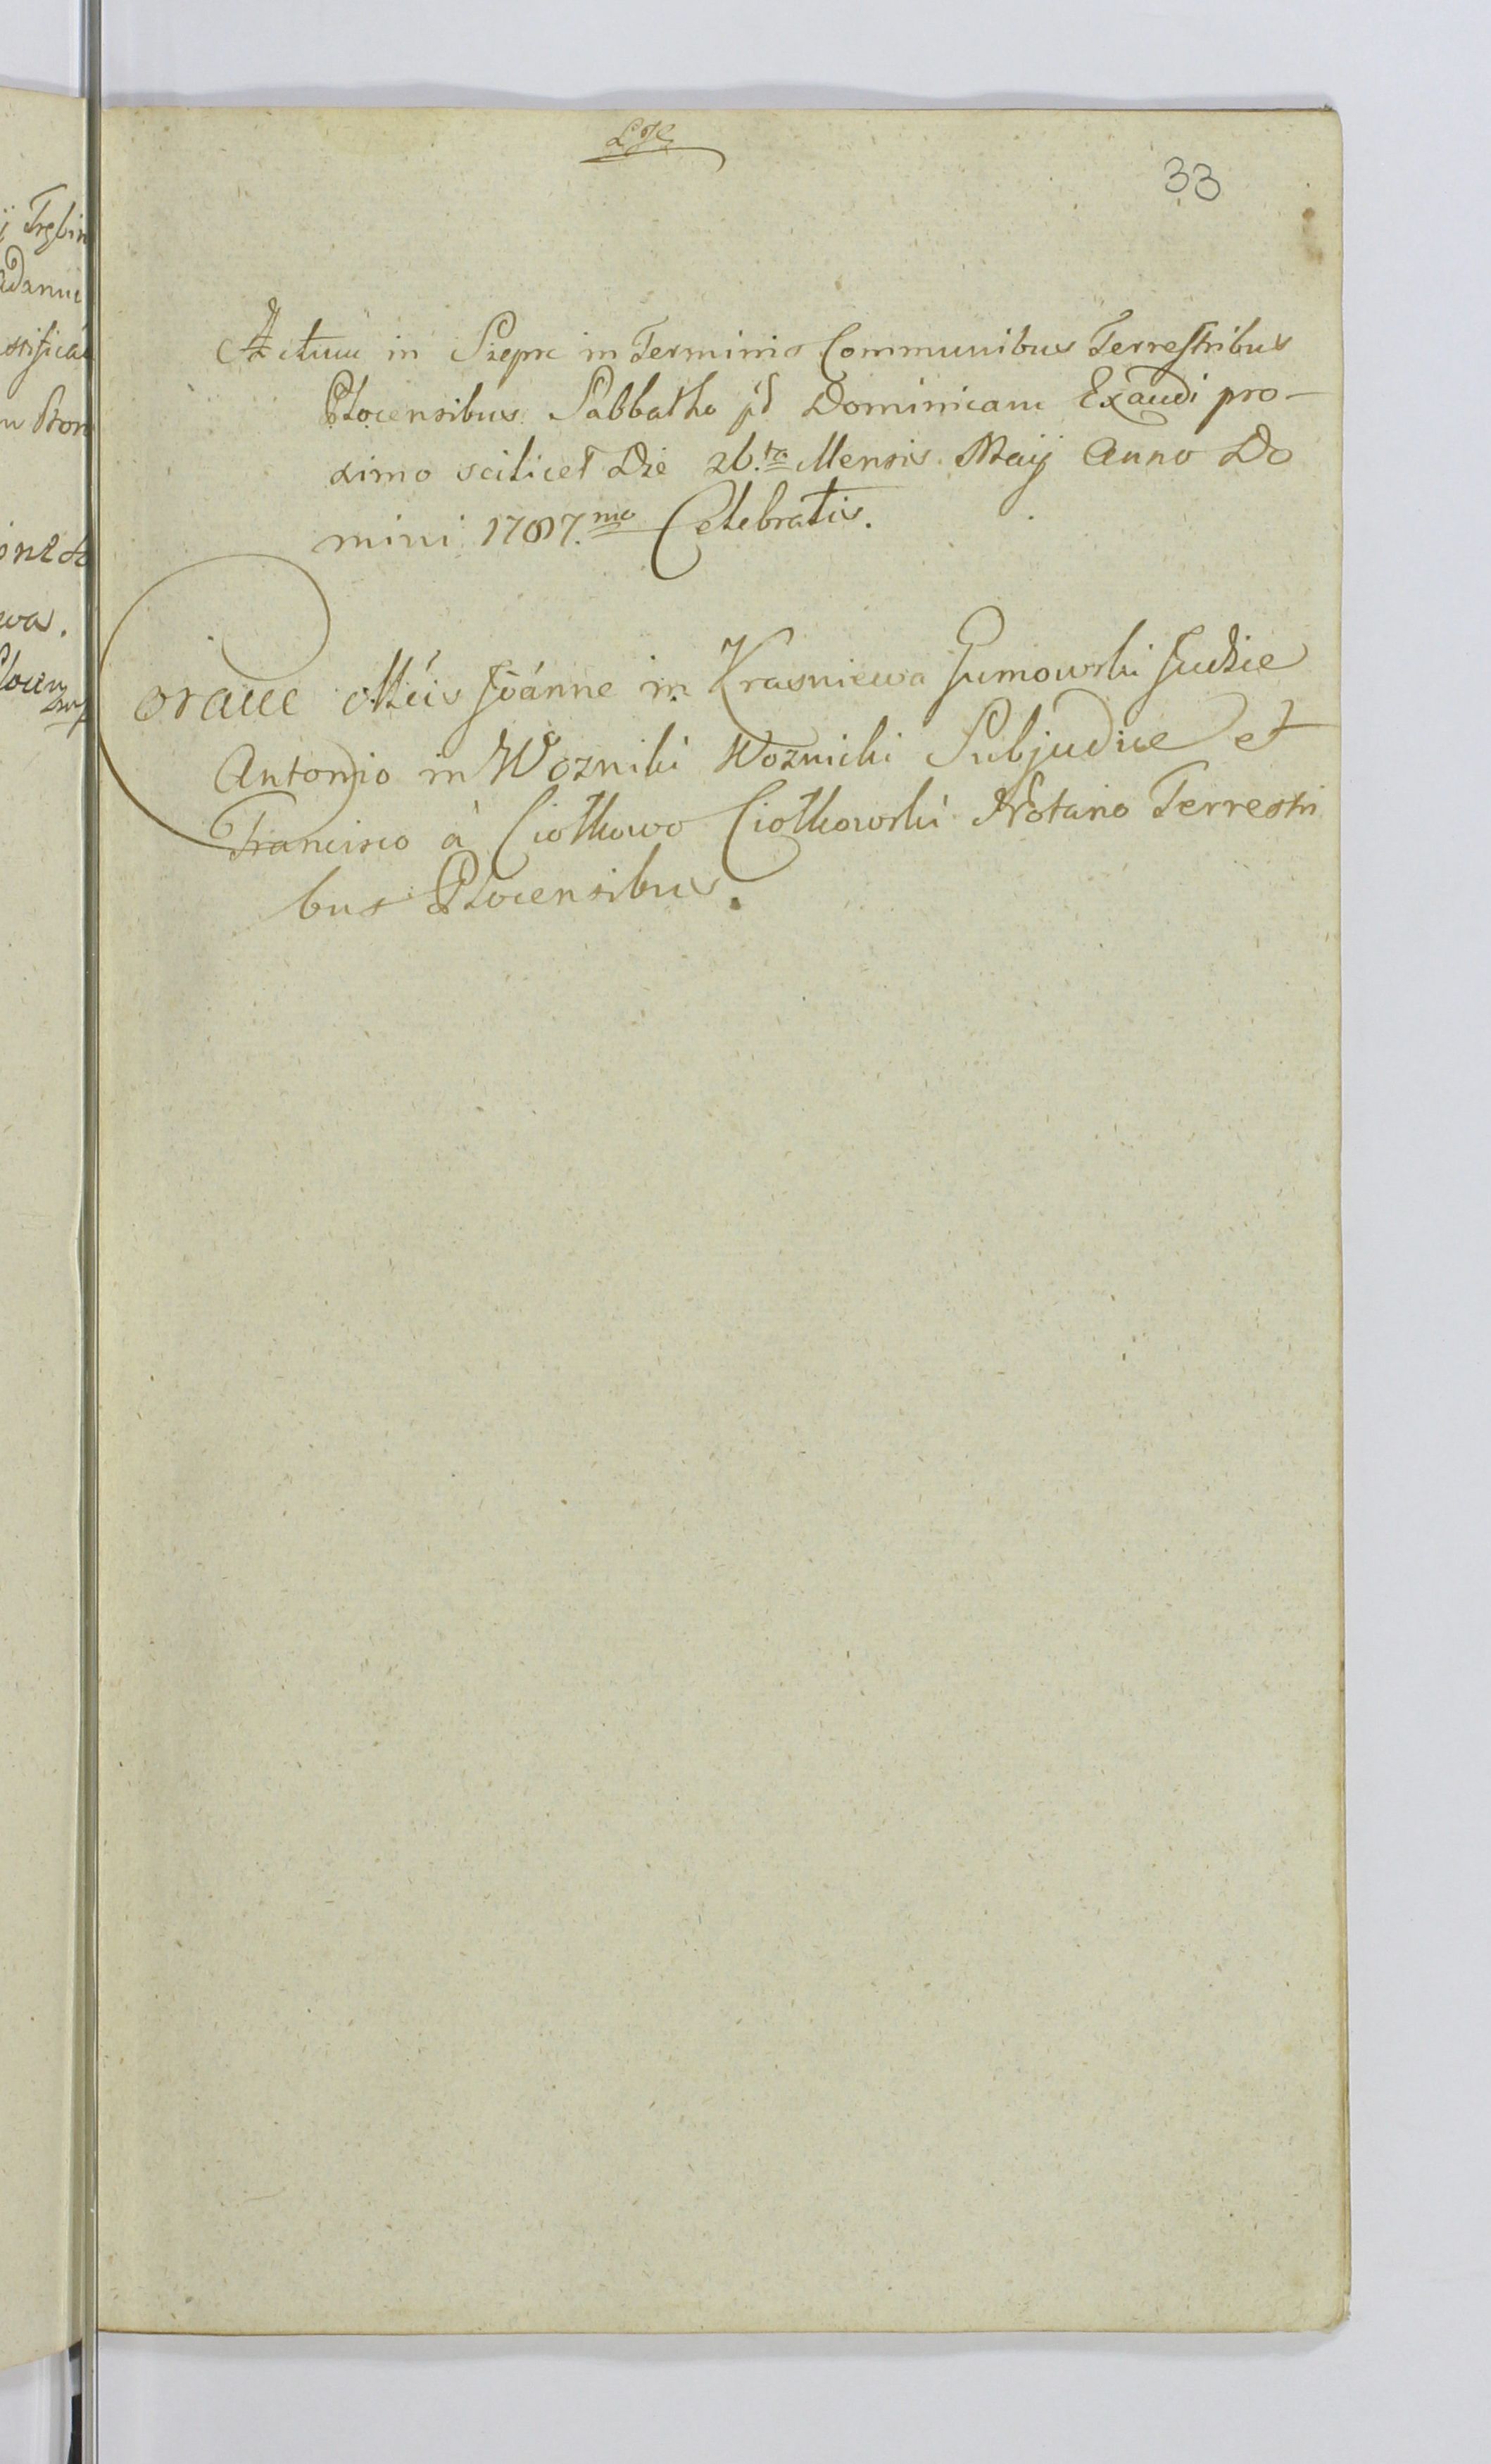 33
Actum in Sieprc in Terminis Communibus Terrestribus
Plocensibus Sabbatho pt Dominicam Exaudi pro-
ximo scilicet Die 26.ta Mensis Maij Anno Do
mini 1787.mo Celebratis.
Coram Mcis Joanne in Krasniewa Gumowski Judice
Antonio in Wozniki Woznicki Subjudice et
Francisco à Ciołkowo Ciołkowski Notario Terrestri
bus Plocensibus.